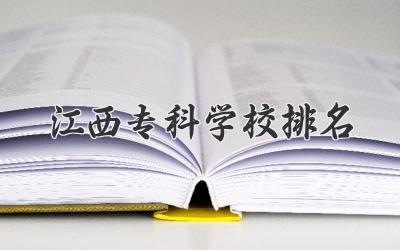 江西专科学校排名